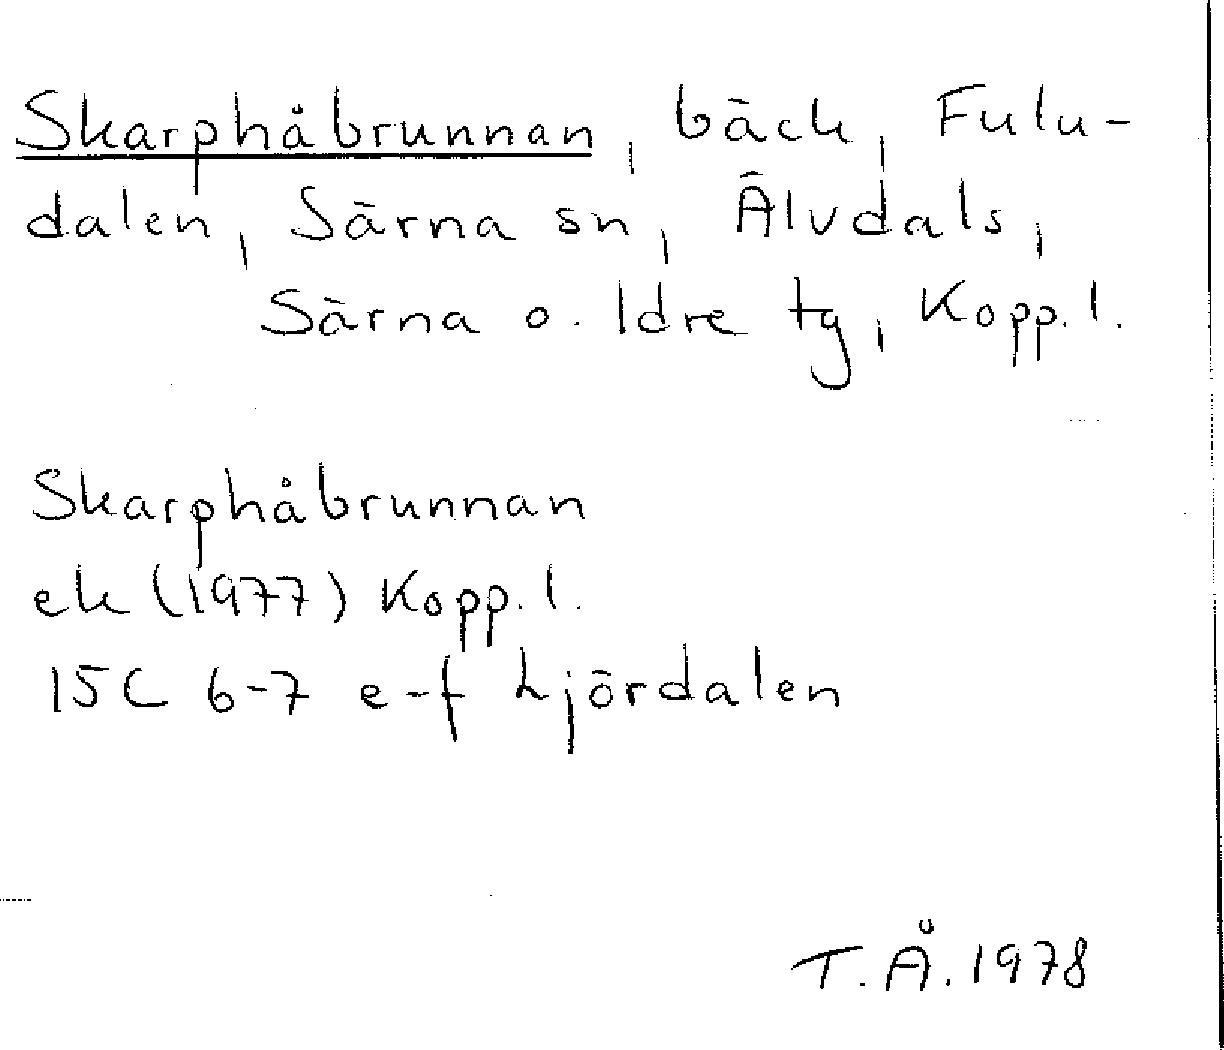 Skarphåbrunnan, bäck, Fulu-
dalen, Särna sn, Älvdals,
Särna o. Idre tg, Kopp. l.
Skarphåbrunnan
ek (1977) Kopp. l.
15C 6-7 e-f Ljördalen
T.Å. 1978